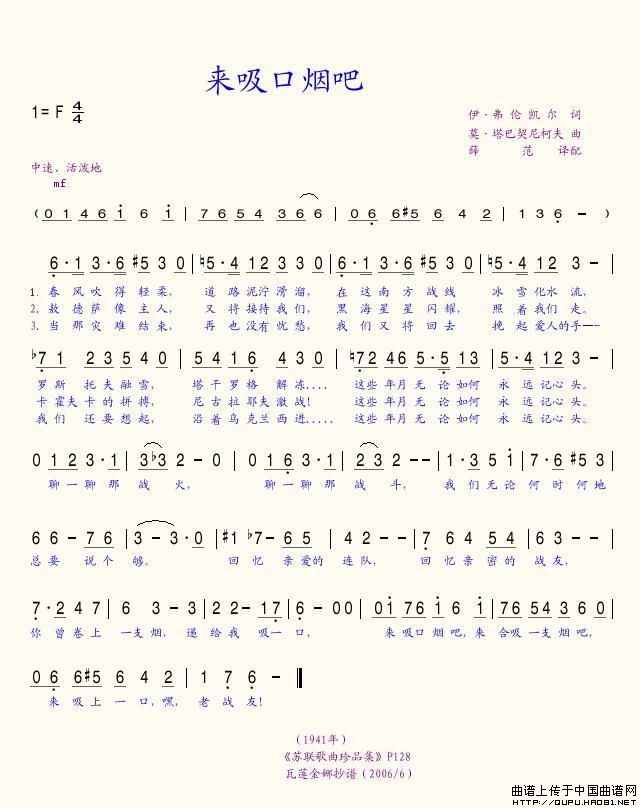 来吸口烟吧
1=F 4/4
伊·弗伦凯尔 词
莫·塔巴契尼柯夫 曲
薛 范 译配
中速、活泼地
mf
(0 1 4 6 i 6 i | 7 6 5 4 3 6 6 | 0 6 6 #5 6 4 2 | 1 3 6 - )
6·1 3·6 #5 3 0 | ♮5·4 1 2 3 0 | 6·1 3·6 #5 3 0 | ♮5·4 1 2 3 - |
1. 春风吹得轻柔, 道路泥泞滑溜, 在这南方战线 冰雪化水流,
2. 敖德萨像主人, 又将接待我们, 黑海星星闪耀, 照着我们走。
3. 当那灾难结束, 再也没有忧愁, 我们又将回去 挽起爱人的手—-
♭7 1 2 3 5 4 0 | 5 4 1 6 4 3 0 | ♮7 2 4 6 5·5 1 3 | 5 4 1 2 6 - |
罗斯托夫融雪, 塔干罗格解冻.... 这些年月无论如何 永远记心头。
卡霍夫卡的拼搏, 尼古拉耶夫激战! 这些年月无论如何 永远记心头。
我们还要想起, 沿着乌克兰西进..... 这些年月无论如何 永远记心头。
0 1 2 3·1 | 3 ♭3 2 - 0 | 0 1 6 3·1 | 2 3 2 - | 1·3 5 i | 7·6 #5 3 |
聊一聊那 战火, 聊一聊那 战斗, 我们无论何时何地
6 6 - 7 6 | 3 - 3·0 | #1 ♭7- 6 5 | 4 2 - - | 7 6 4 5 4 | 6 3 - - |
总要说个够。 回忆亲爱的连队, 回忆亲密的战友,
7·2 4 7 | 6 3 - 3 | 2 2- 1 7 | 6 - 0 0 | 0 i 7 6 i 6 i | 7 6 5 4 3 6 0 |
你曾卷上一支烟, 递给我吸一口, 来吸口烟吧,来合吸一支烟吧,
0 6 6 #5 6 4 2 | 1 7 6 -
来吸上一口,嘿, 老战友!
(1941年)
《苏联歌曲珍品集》P128
瓦莲金娜抄谱(2006/6)
曲谱上传于中国曲谱网
HTTP://QUPU.HAO81.NET